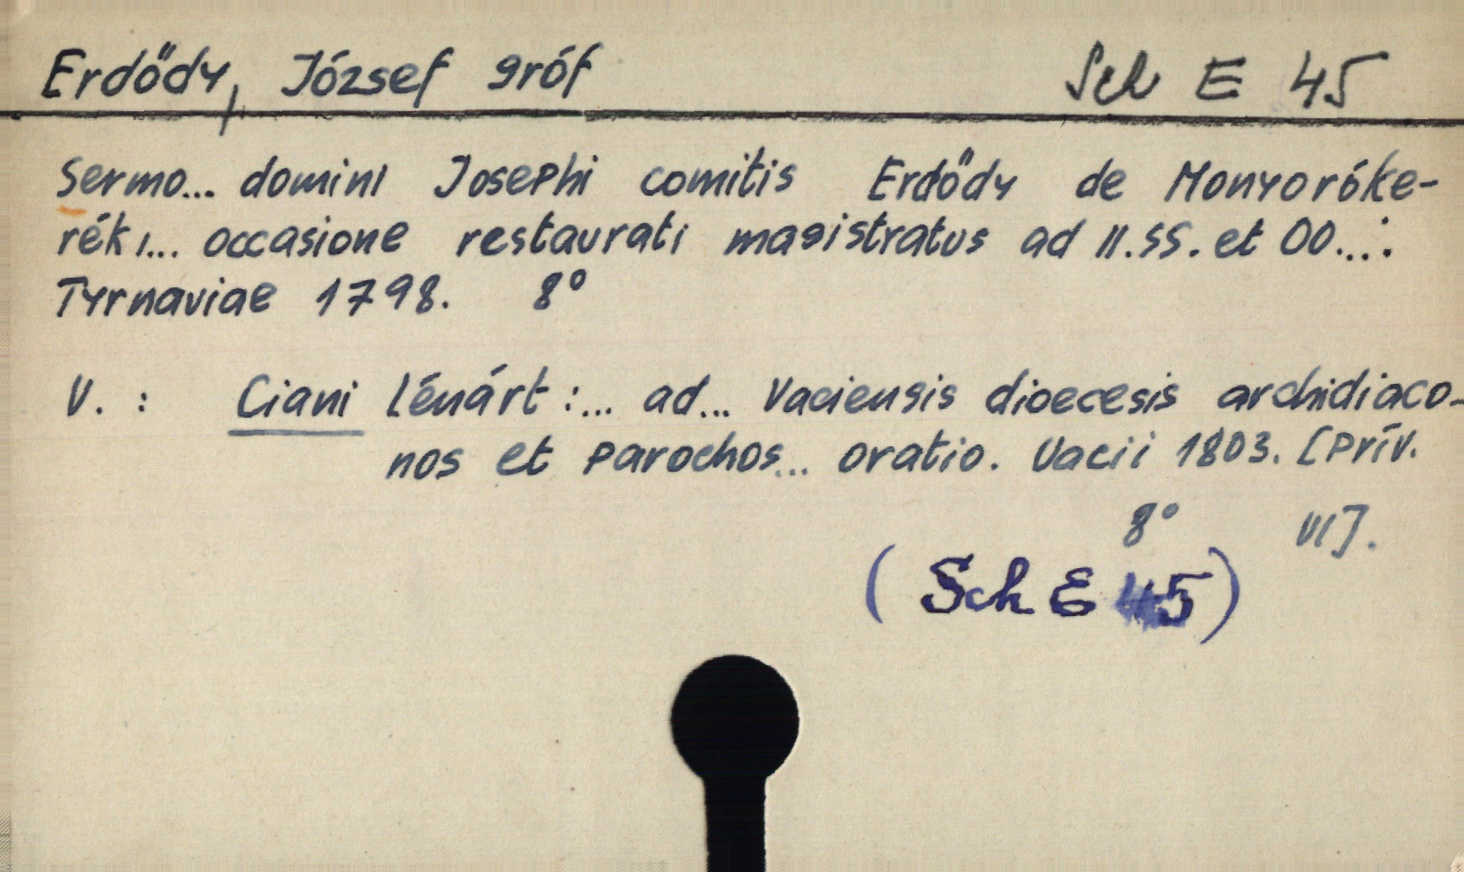 Erdődy, József gróf Sch E 45
Sermo... domini Josephi comitis Erdődy de Monyoróke-
réki... occasione restaurati magistratus ad II.SS. et OO...:
Tyrnaviae 1798. 8°
V. : Ciani Lénárt :... ad... Vaciensis dioecesis archidiaco-
nos et parochos... oratio. Vacii 1803. [Prív.
8° VI].
(Sch E 45)